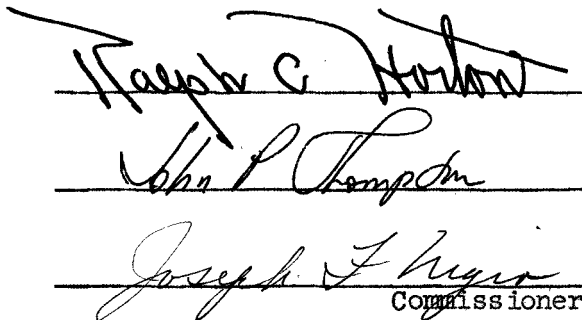 Ralph C Horton
John P Thompson
Joseph F Nigro
Commissioner